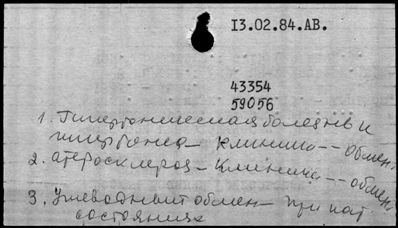 13.02.84.АВ.
43354
59056
1. Гипертоническая болезнь и
гипертония – клиника -- обмен.
2. атеросклероз – клиника -- обмен
3. Углеводный обмен – при пат
состояниях